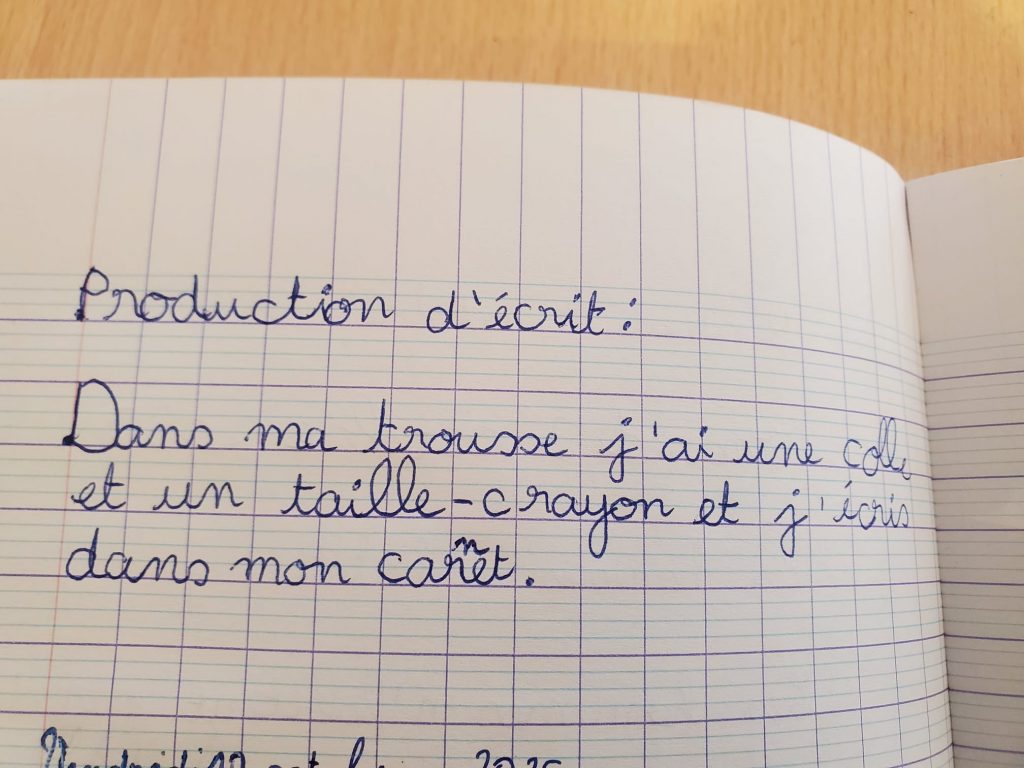 Production d'écrit :
Dans ma trousse j'ai une colle
et un taille-crayon et j'écris
dans mon carnet.